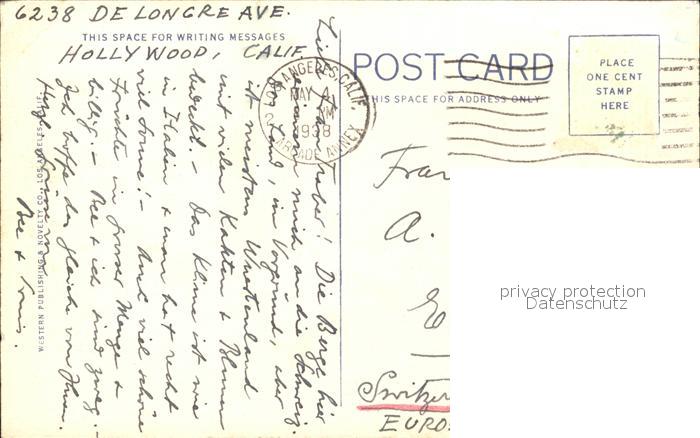 6238 DE LONGRE AVE.
THIS SPACE FOR WRITING MESSAGES
HOLLYWOOD, CALIF.
Liebe Frau Traber! Die Berge hier
erinnern mich an die Schweiz.
Das Land, im Vorgrund, aber
ist meistens Wuestenland
mit vielen Kakten & Blumen
bedeckt. - Das Klima ist wie
in Italien & man hat recht
viel Sonne! - Auch viel schöne
Früchte in grosser Menge &
billig. - Bee & ich sind zweg. -
Ich hoffe das gleiche von Ihnen.
Herzl. Grüsse von
Bee & Louis.
WESTERN PUBLISHING & NOVELTY CO., LOS ANGELES, CALIF.
POST CARD
THIS SPACE FOR ADDRESS ONLY
LOS ANGELES, CALIF.
MAY 4
PM
1938
ARCADE ANNEX
PLACE
ONE CENT
STAMP
HERE
Frau
A.
E
Switzer
EURO
privacy protection
Datenschutz